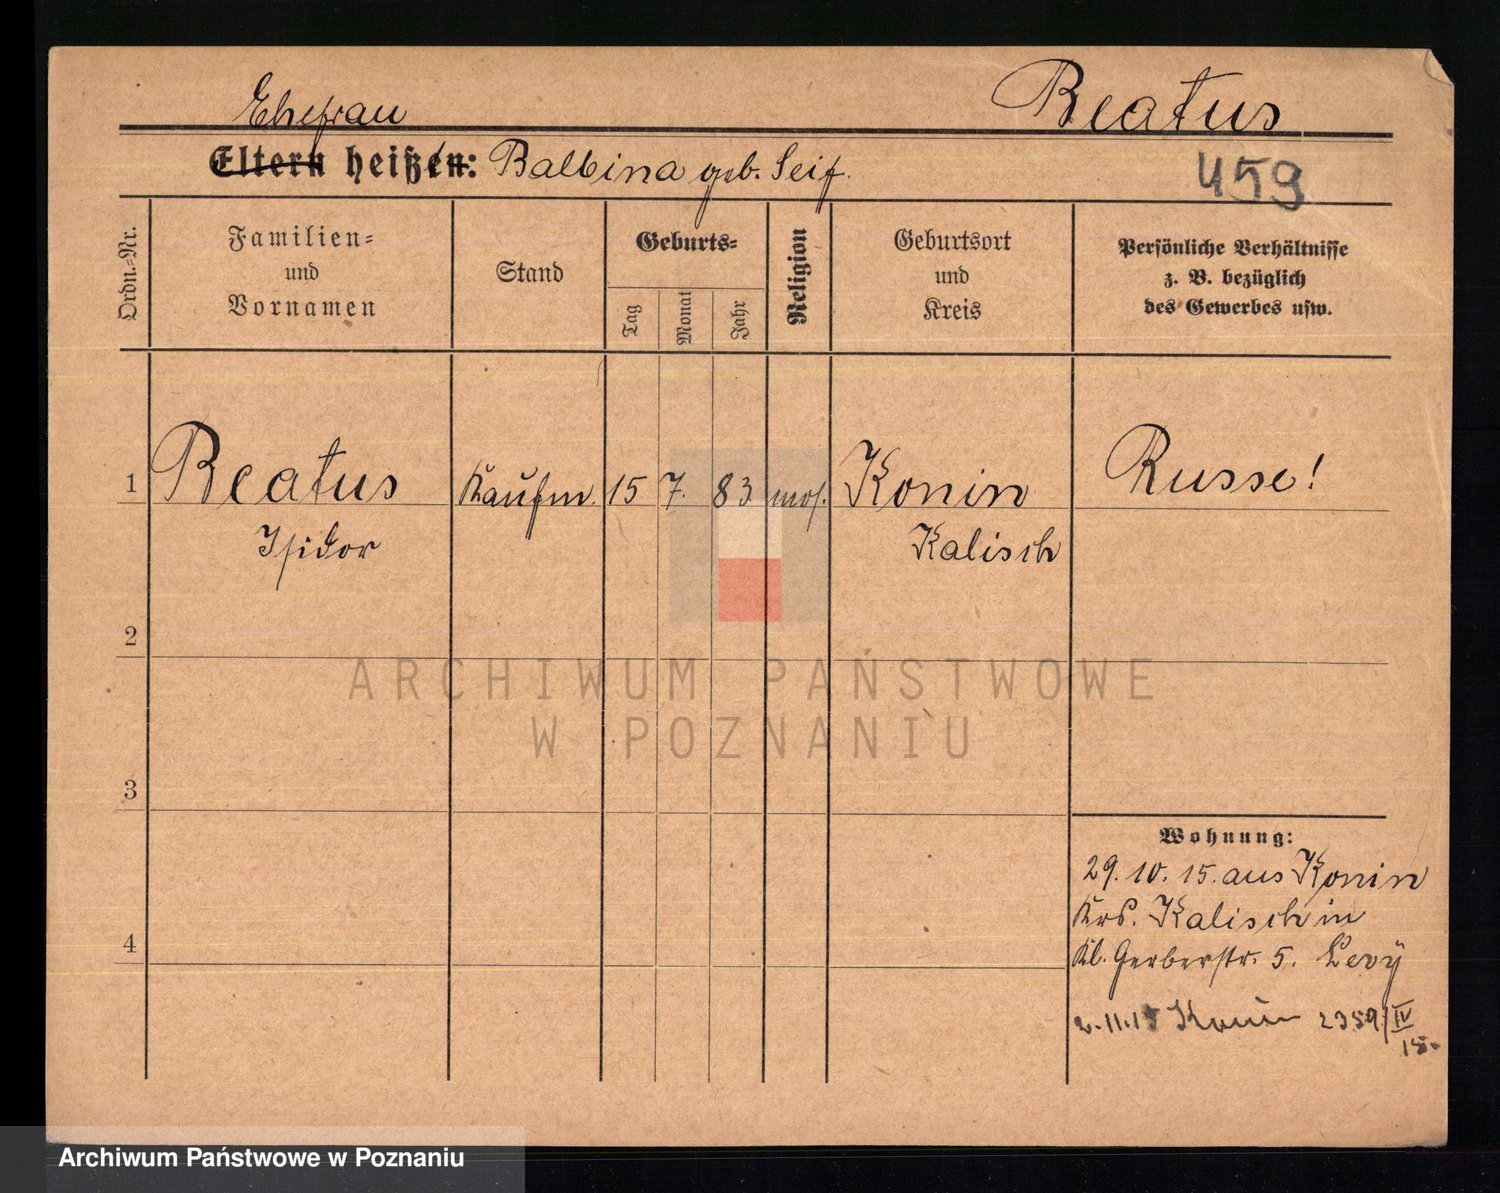 Ehefrau
Beatus
Eltern heißen: Balbina geb. Seif.
459
Ordn.-Nr.
Familien-
und
Vornamen
Stand
Geburts-
Tag
Monat
Jahr
Religion
Geburtsort
und
Kreis
Persönliche Verhältnisse
z. B. bezüglich
des Gewerbes usw.
1 Beatus Kaufm. 15 7. 83 mos. Konin Russe!
Isidor Kalisch
2
ARCHIWUM PAŃSTWOWE
W POZNANIU
3
Wohnung:
29. 10. 15. aus Konin
Krs. Kalisch in
4
Kl. Gerberstr. 5. Levÿ
2.11.15 Konin 2359/IV
15.
Archiwum Państwowe w Poznaniu